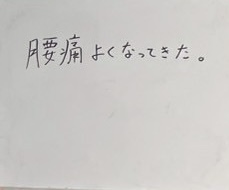 腰痛よくなってきた。